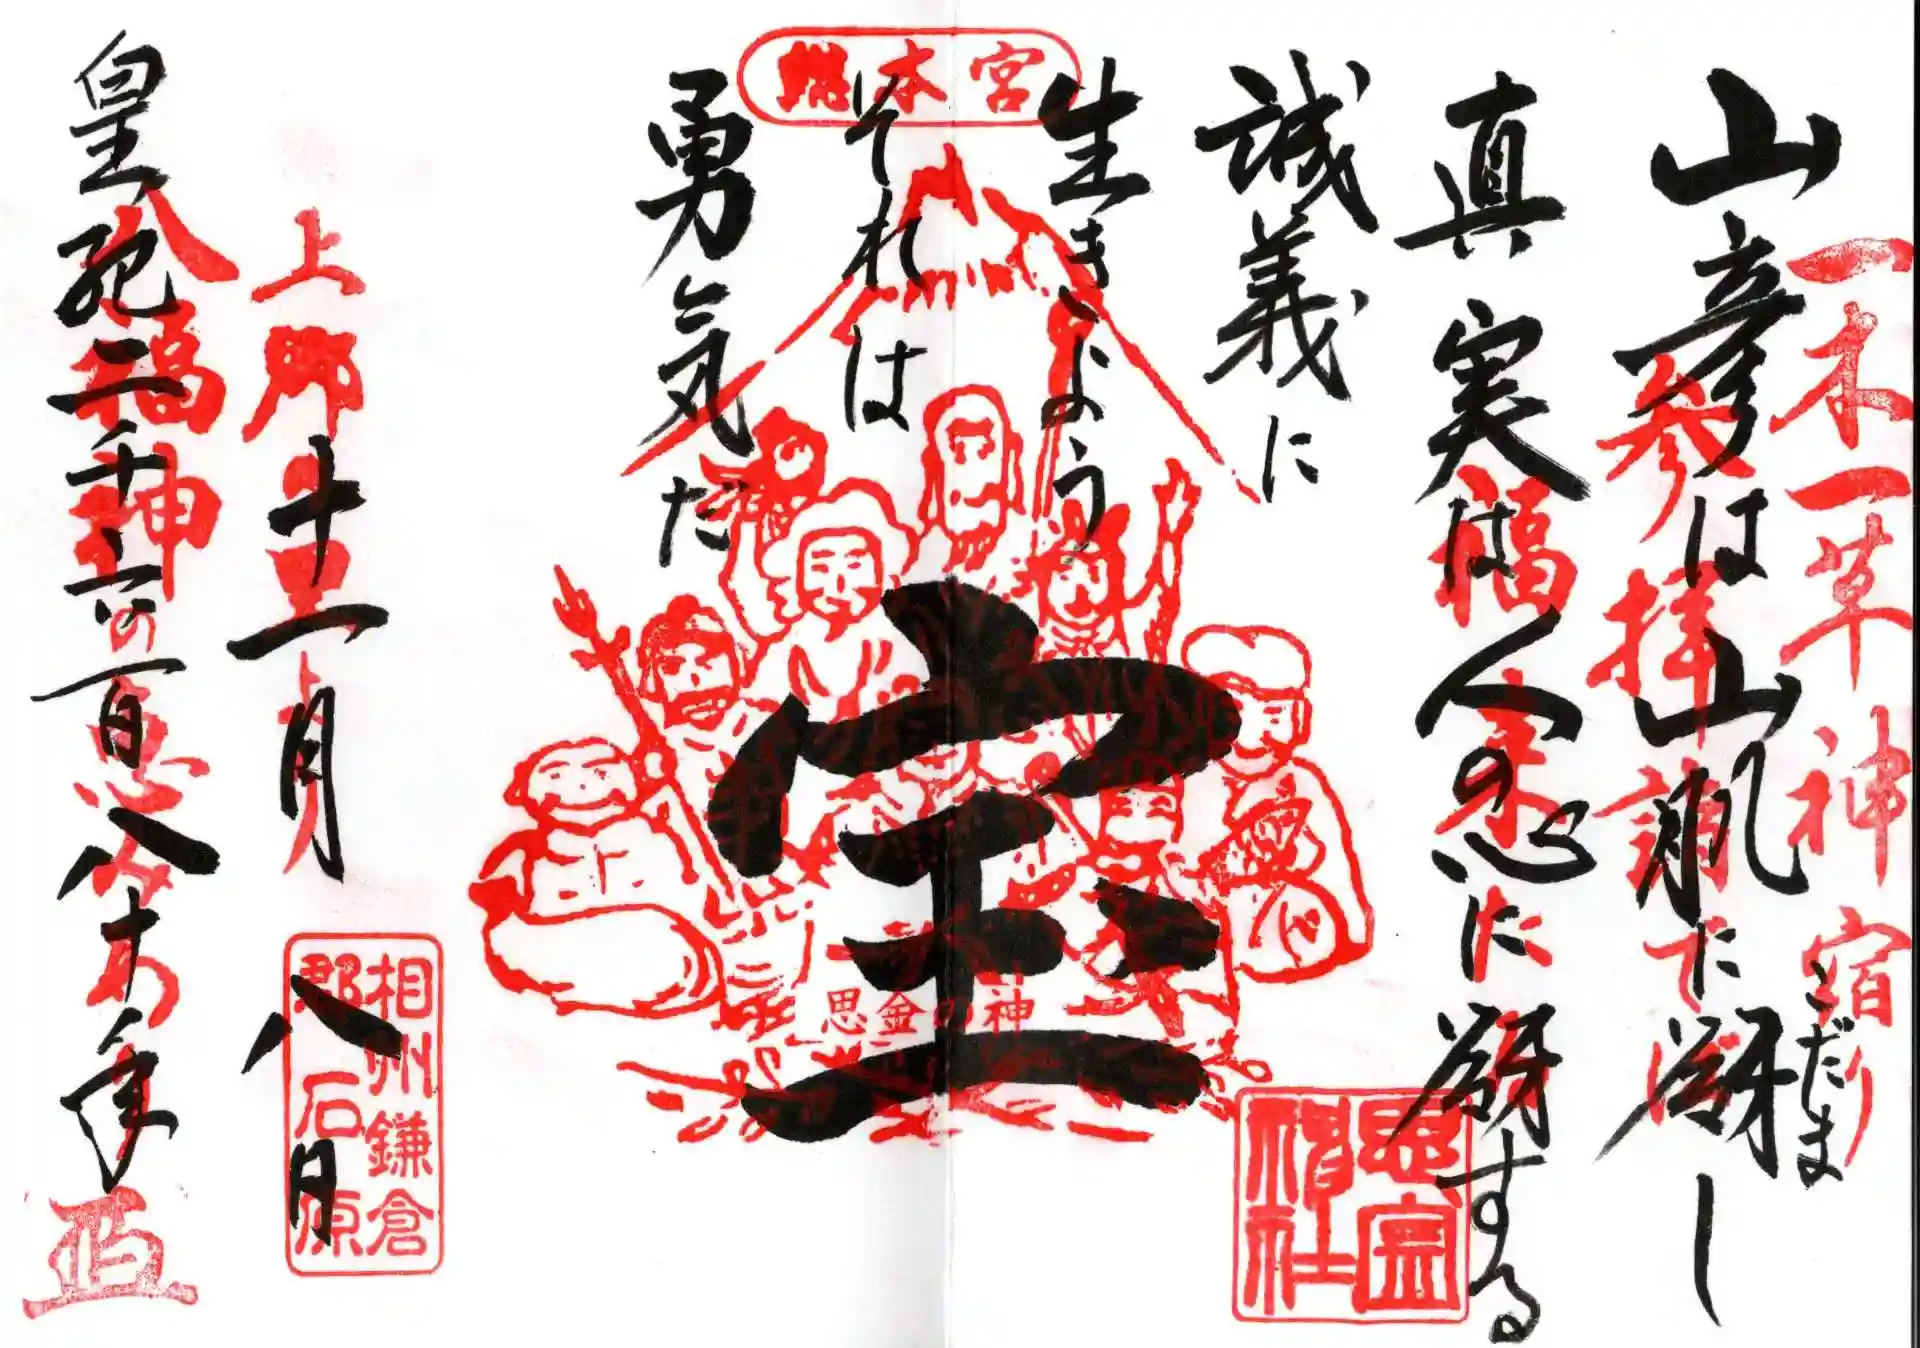 一木一草神宿り
山彦は山肌に谺し
こだま
参拝謝で
真実は人の心に谺する
福来
誠義に
生きよう
それは
勇気だ
総本宮
宝
思金の神
思金神社
上郷
十一月八日
相州鎌倉
郡石原
皇紀二千六百八十年
八福神の恵みあり